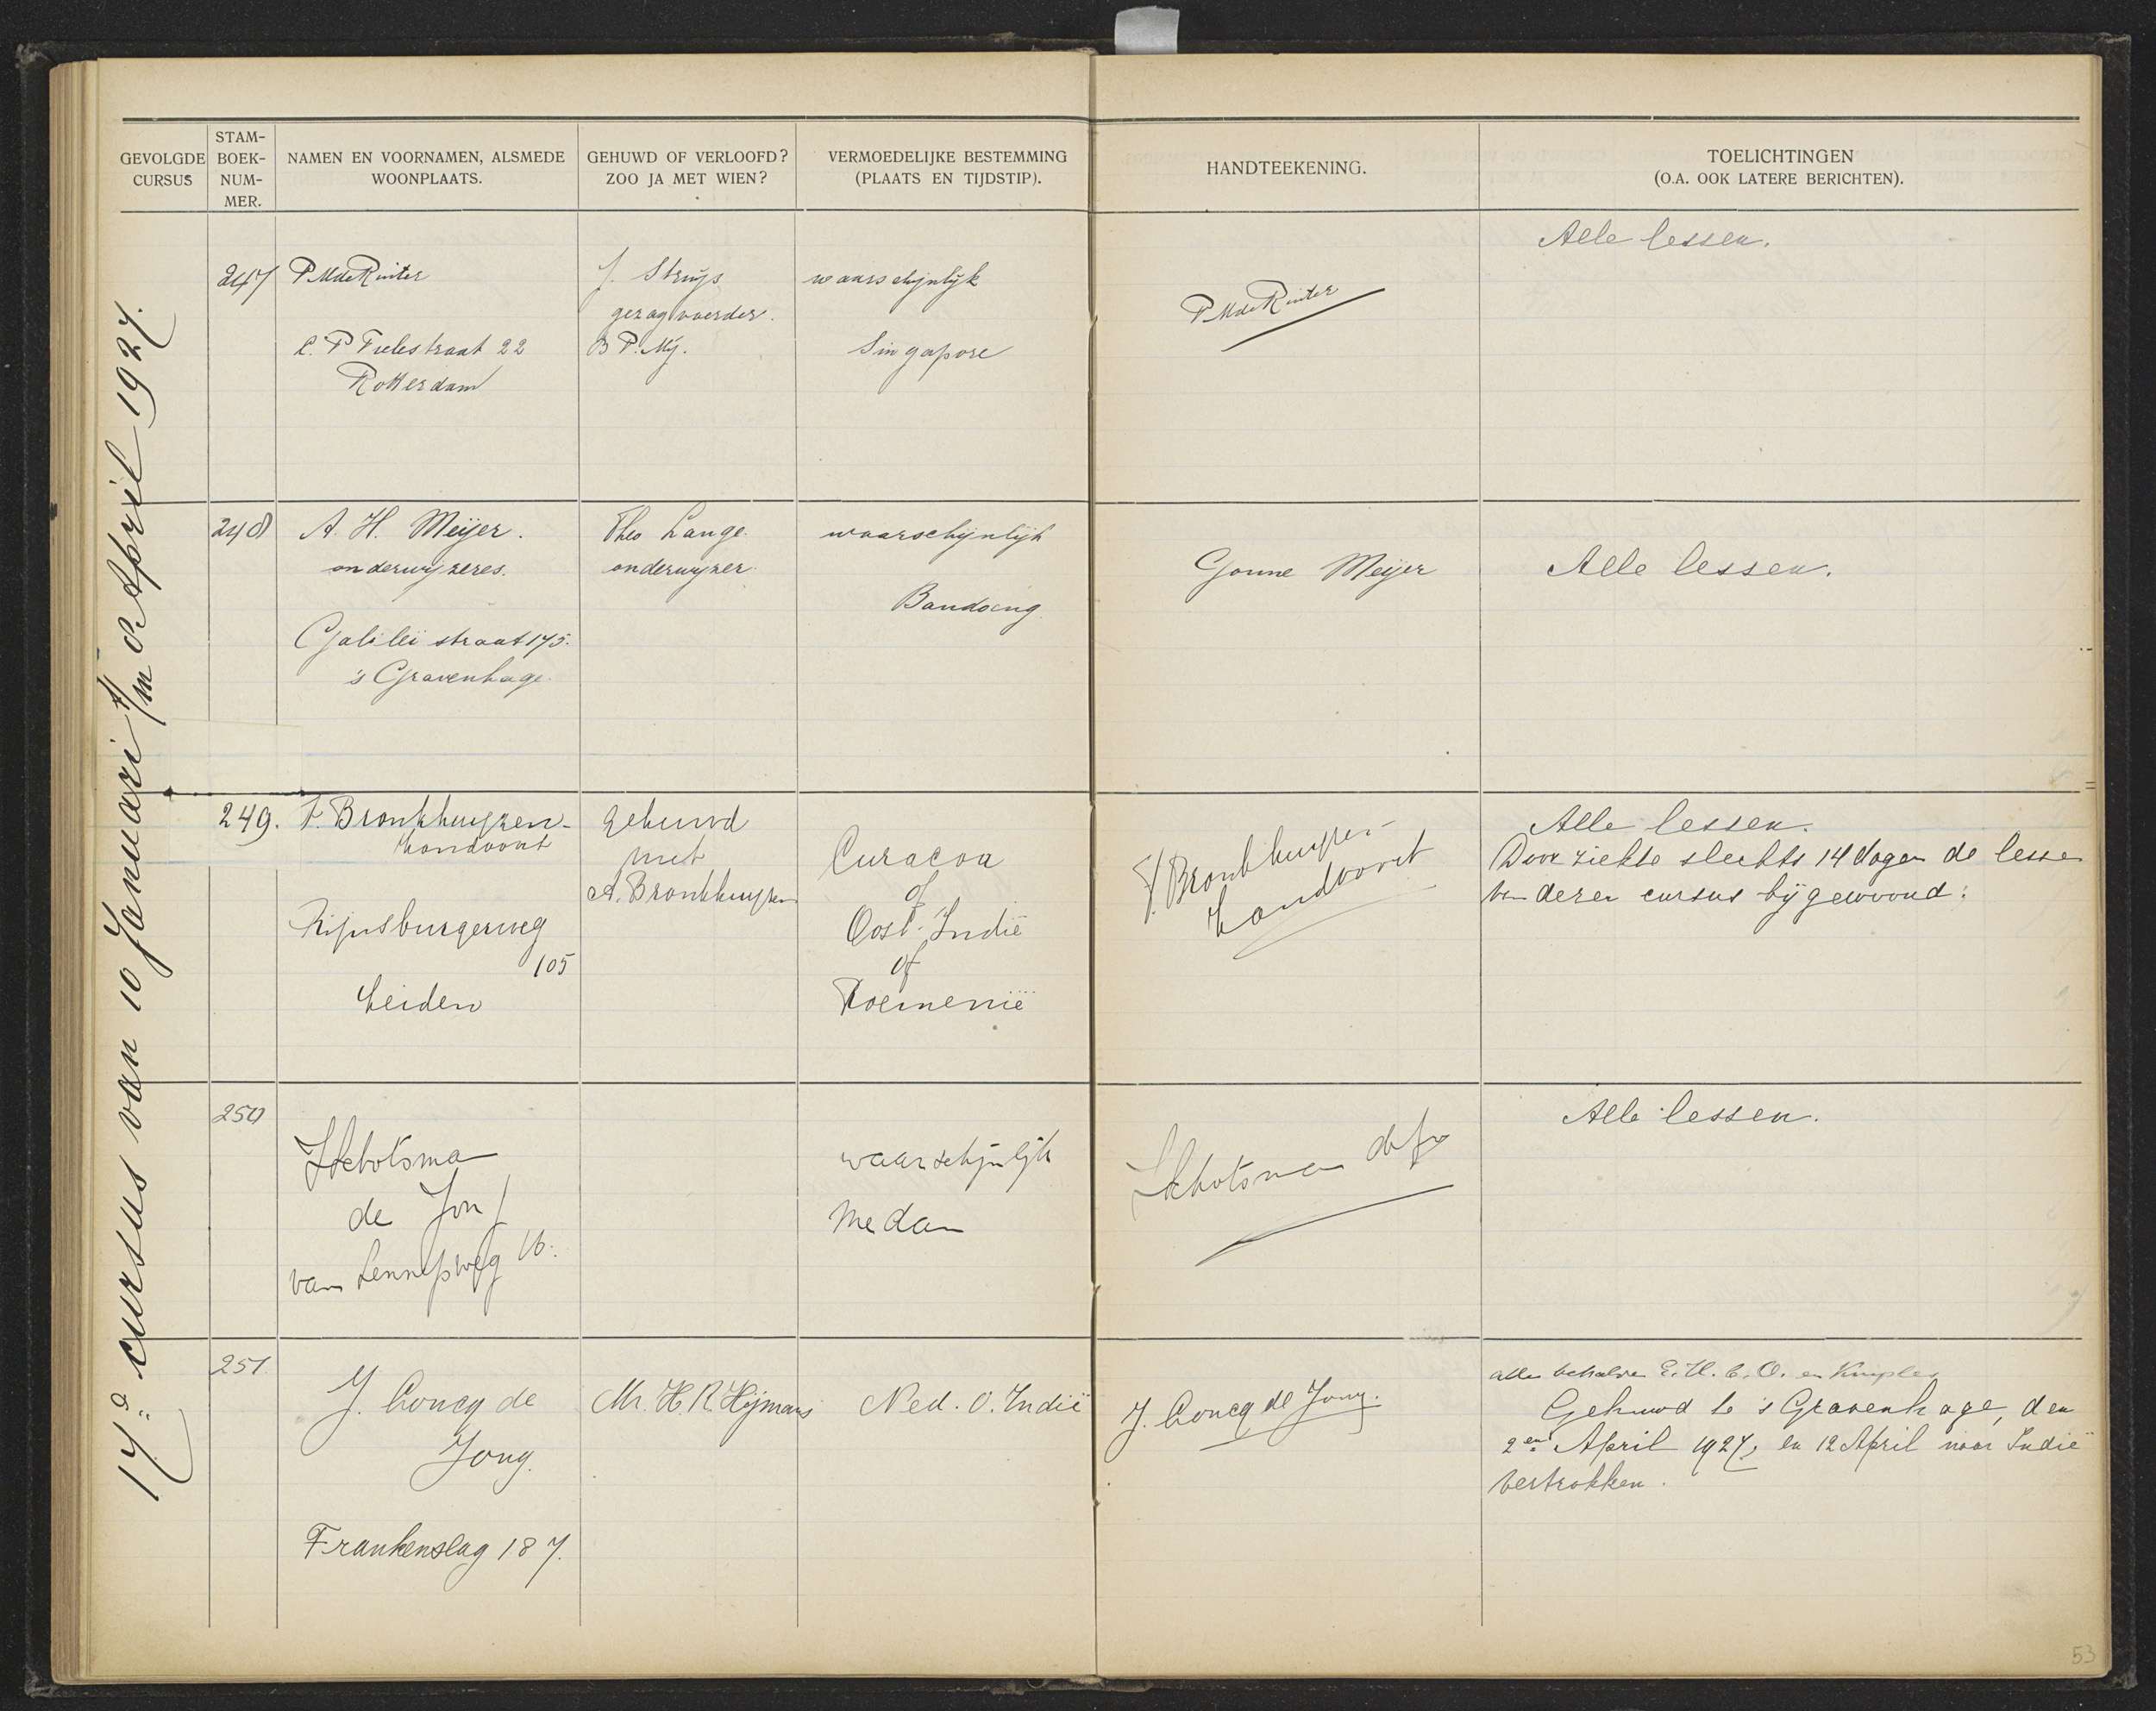 GEVOLGDE CURSUS
STAM-BOEK-NUM-MER.
NAMEN EN VOORNAMEN, ALSMEDE WOONPLAATS.
GEHUWD OF VERLOOFD? ZOO JA MET WIEN?
VERMOEDELIJKE BESTEMMING (PLAATS EN TIJDSTIP).
HANDTEEKENING.
TOELICHTINGEN (O.A. OOK LATERE BERICHTEN).
17e cursus van 10 Januari t/m 2 April 1927.
247
P M de Ruiter
C. P Tielestraat 22
Rotterdam
J. Struijs
gezagvoerder.
B P. Mij.
waarschijnlijk
Singapore
P M de Ruiter
Alle lessen.
248
A. H. Meijer.
onderwijzeres.
Galileï straat 175.
's Gravenhage.
Theo Lange.
onderwijzer.
waarschijnlijk
Bandoeng.
Gonne Meijer
Alle lessen.
249.
F. Bronkhuyzen-
Zandvoort
Rijnsburgerweg
105
Leiden
gehuwd
met
A. Bronkhuyzen
Curacoa
of
Oost-Indië
of
Roemenië
F. Bronkhuyzen-
Zandvoort
Alle lessen.
Door ziekte slechts 14 dagen de lessen
van dezen cursus bijgewoond.
250
Schotsma
de Jong
van Lennepweg 16.
waarschijnlijk
Medan
Schotsma de Jo
Alle lessen.
251.
J. Concq de
Jong.
Frankenslag 187.
Mr. H. R. Hijmans
Ned. O. Indië
J. Concq de Jong.
alle behalve E. H. b. O. en Knippen
Gehuwd te 's Gravenhage, den
2en April 1927, en 12 April naar Indië
vertrokken.
53